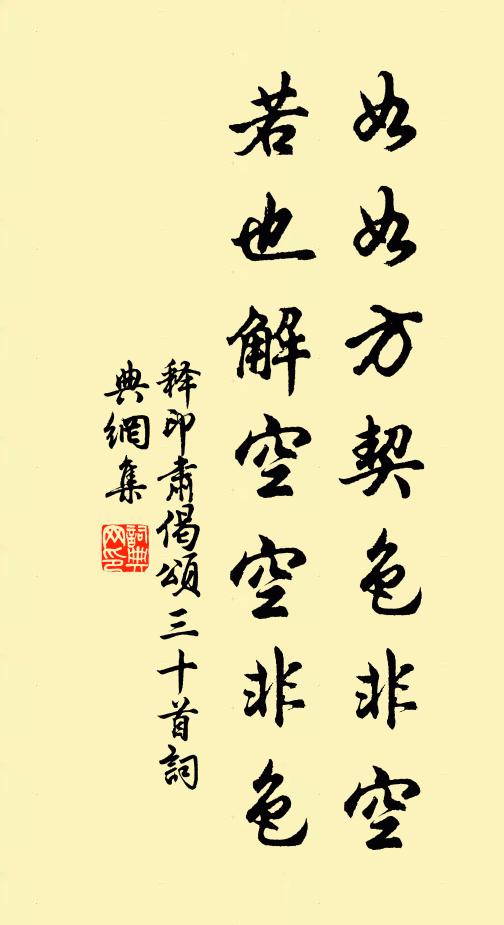 如如方契色非空
若也解空空非色
释印肃偈頌三十首詞
典網集
詞典
网印